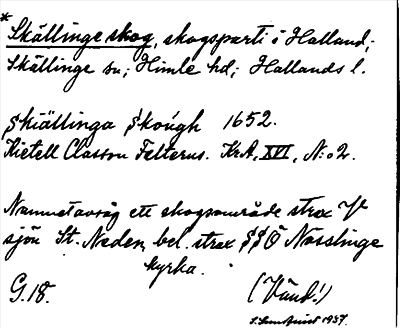 * Skällinge skog, skogsparti i Halland;
Skällinge sn; Himle hd; Hallands l.
Skiällinga Skough 1652.
Kietell Classon Felterus. KrA, XVI, N:o 2.
Namnet avsåg ett skogsområde strax V
sjön St. Neden, bel. strax SSÖ Nösslinge
kyrka.
G. 18. (Vänd!)
1937.